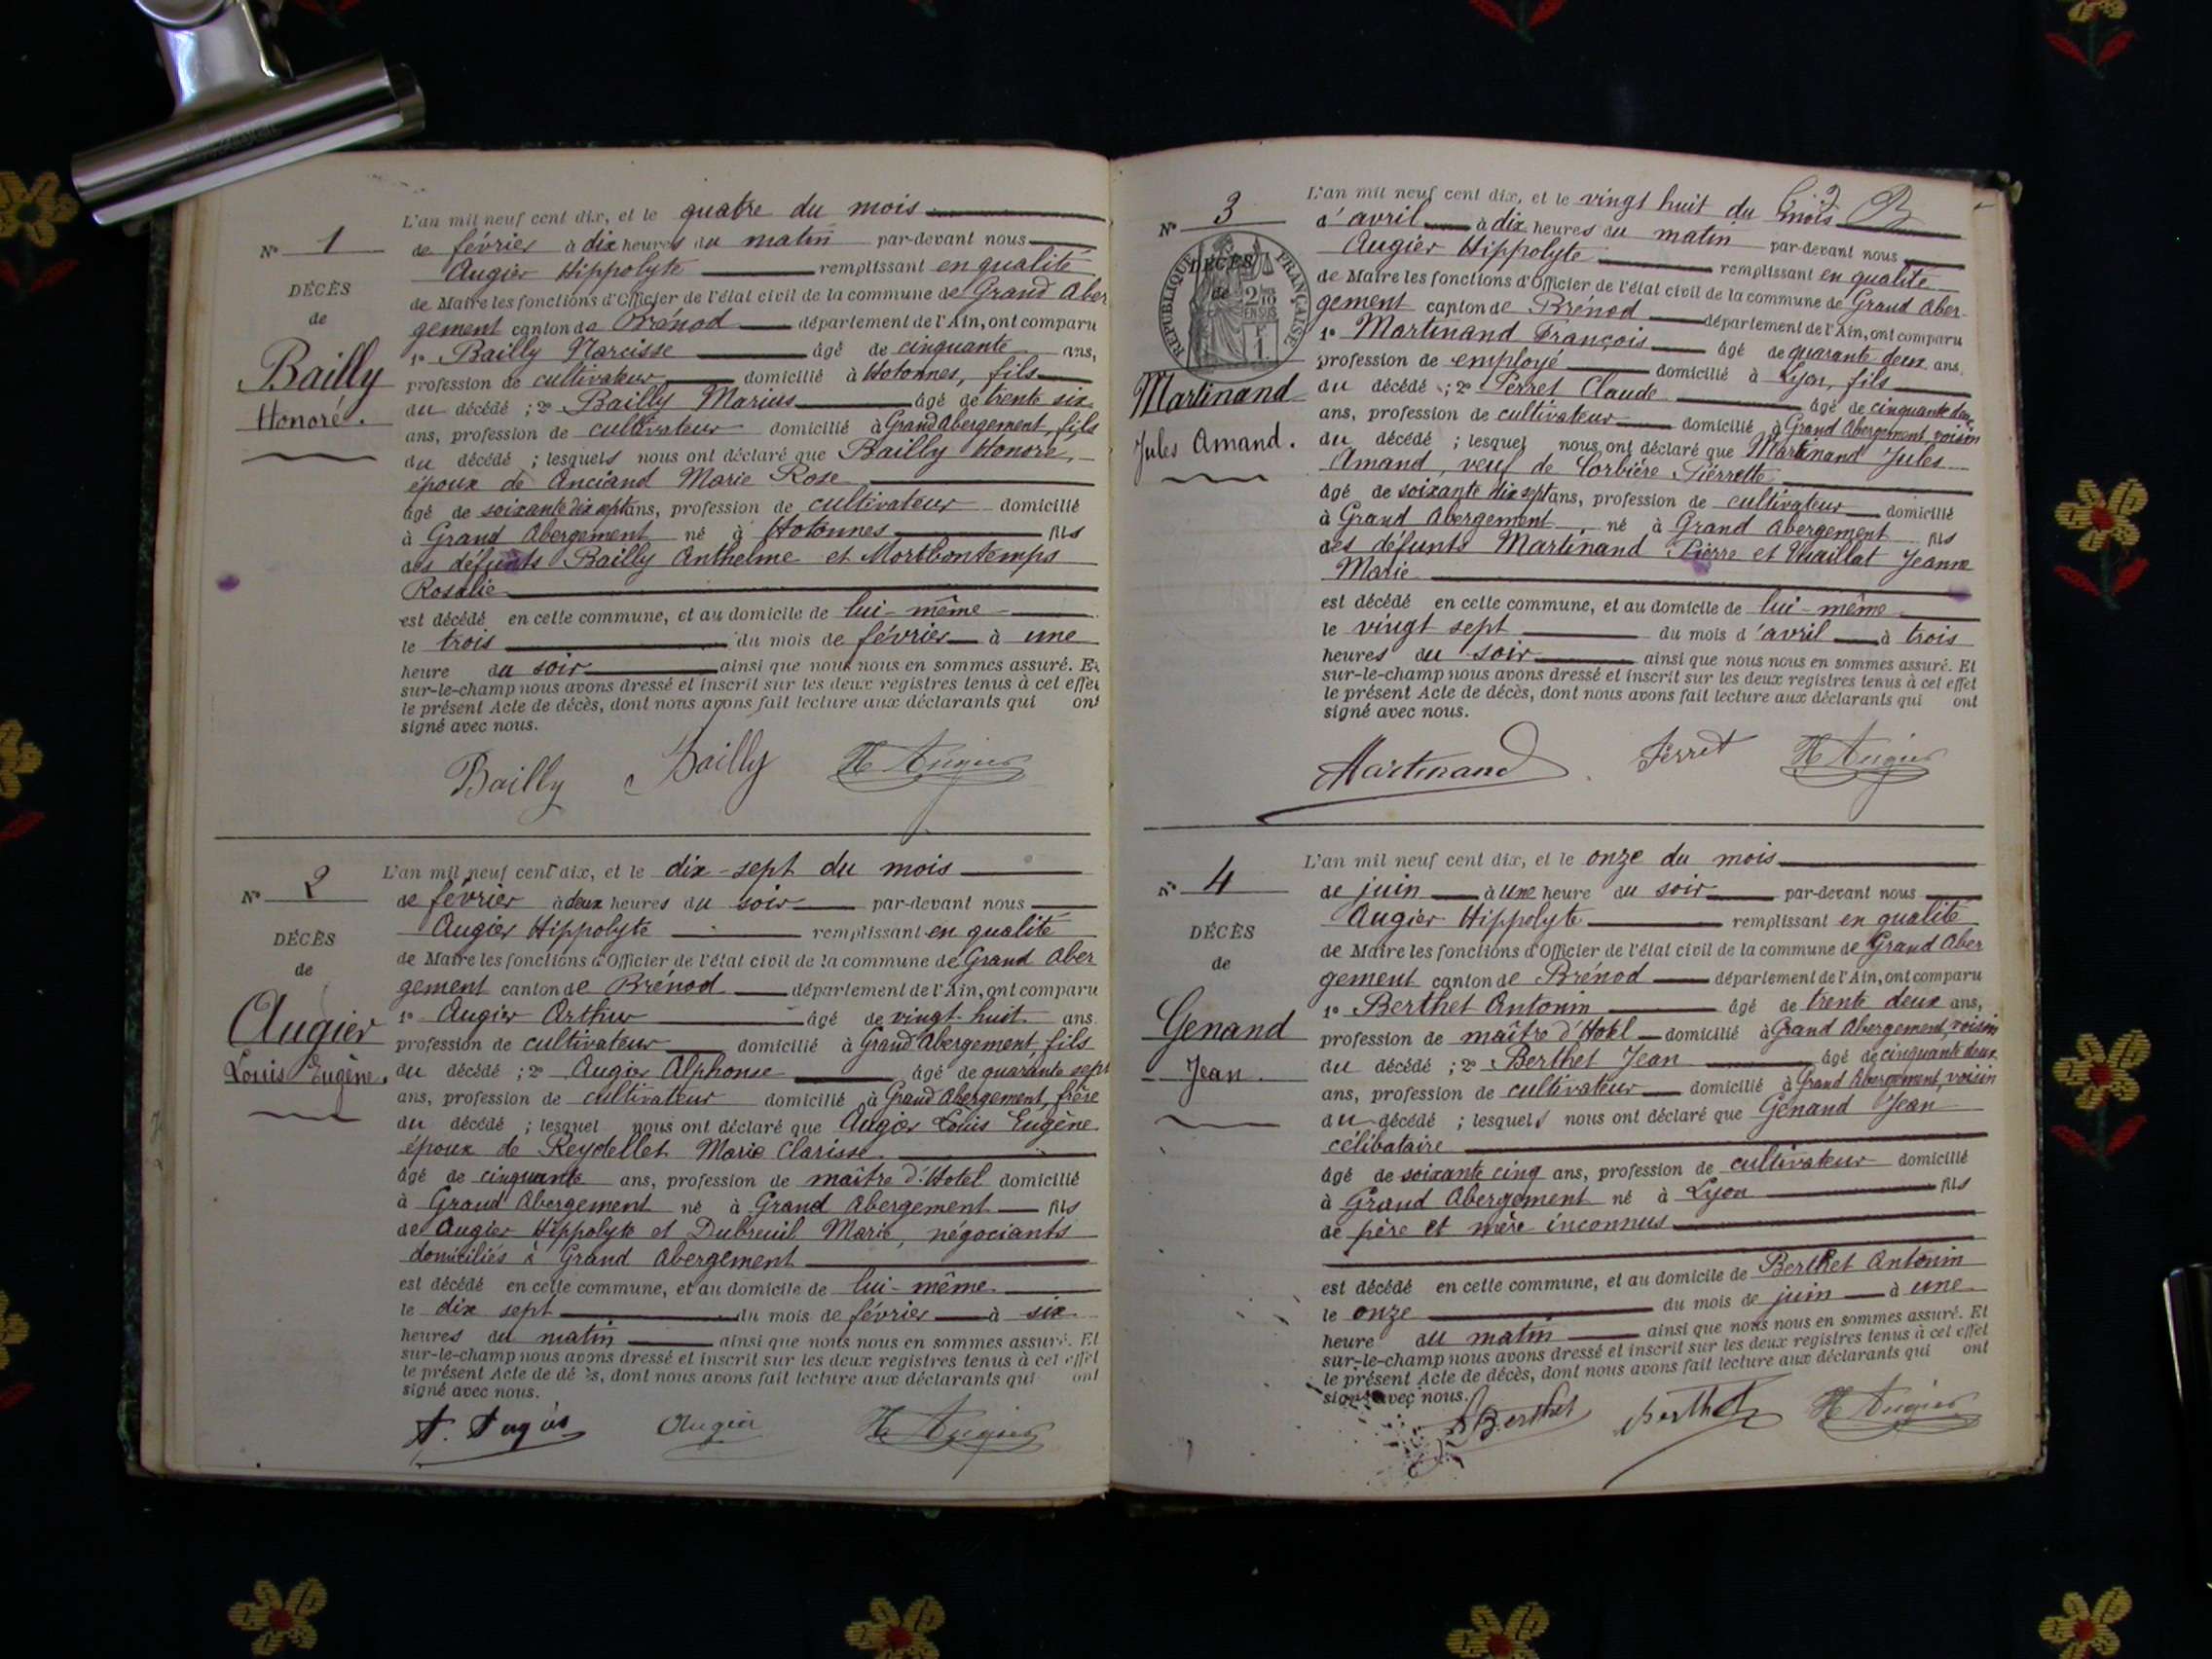 N° 1
DÉCÈS
de
Bailly
Honoré.
L'an mil neuf cent dix, et le quatre du mois
de février à dix heures du matin par-devant nous
Augier Hippolyte remplissant en qualité
de Maire les fonctions d'Officier de l'état civil de la commune de Grand Aber
gement canton de Brénod département de l'Ain, ont comparu
1° Bailly Narcisse âgé de cinquante ans,
profession de cultivateur domicilié à Hotonnes, fils
du décédé ; 2° Bailly Marius âgé de trente six
ans, profession de cultivateur domicilié à Grand Abergement, fils
du décédé ; lesquels nous ont déclaré que Bailly Honoré,
époux de Anciand Marie Rose
âgé de soixante dix sept ans, profession de cultivateur domicilié
à Grand Abergement né à Hotonnes fils
des défunts Bailly Anthelme et Mortbontemps
Rosalie
est décédé en cette commune, et au domicile de lui-même
le trois du mois de février à une
heure du soir ainsi que nous nous en sommes assuré. Et
sur-le-champ nous avons dressé et inscrit sur les deux registres tenus à cet effet
le présent Acte de décès, dont nous avons fait lecture aux déclarants qui ont
signé avec nous.
Bailly Bailly H Augier
N° 2
DÉCÈS
de
Augier
Louis Eugène.
L'an mil neuf cent dix, et le dix-sept du mois
de février à deux heures du soir par-devant nous
Augier Hippolyte remplissant en qualité
de Maire les fonctions d'Officier de l'état civil de la commune de Grand Aber
gement canton de Brénod département de l'Ain, ont comparu
1° Augier Arthur âgé de vingt-huit ans.
profession de cultivateur domicilié à Grand Abergement, fils
du décédé ; 2° Augier Alphonse âgé de quarante sept
ans, profession de cultivateur domicilié à Grand Abergement, frère
du décédé ; lesquel nous ont déclaré que Augier Louis Eugène
époux de Reydellet Marie Clarisse.
âgé de cinquante ans, profession de maître d'Hotel domicilié
à Grand Abergement né à Grand Abergement fils
de Augier Hippolyte et Dubreuil Marie, négociants
domiciliés à Grand Abergement
est décédé en cette commune, et au domicile de lui-même
le dix sept du mois de février à six
heures du matin ainsi que nous nous en sommes assuré. Et
sur-le-champ nous avons dressé et inscrit sur les deux registres tenus à cet effet
le présent Acte de décès, dont nous avons fait lecture aux déclarants qui ont
signé avec nous.
A. Augier Augier H Augier
N° 3
RÉPUBLIQUE FRANÇAISE
DÉCÈS
de
2/10 EN SUS
1 F
Martinand
Jules Amand.
L'an mil neuf cent dix, et le vingt huit du mois
d'avril à dix heures du matin par-devant nous
Augier Hippolyte remplissant en qualité
de Maire les fonctions d'Officier de l'état civil de la commune de Grand Aber
gement canton de Brénod département de l'Ain, ont comparu
1° Martinand François âgé de quarante deux ans.
profession de employé domicilié à Lyon, fils
du décédé ; 2° Perret Claude âgé de cinquante deux
ans, profession de cultivateur domicilié à Grand Abergement, voisin
du décédé ; lesquel nous ont déclaré que Martinand Jules
Amand, veuf de Corbière Pierrette
âgé de soixante dix sept ans, profession de cultivateur domicilié
à Grand Abergement, né à Grand Abergement fils
des défunts Martinand Pierre et Jeanne
Marie
est décédé en cette commune, et au domicile de lui-même
le vingt sept du mois d'avril à trois
heures du soir ainsi que nous nous en sommes assuré. Et
sur-le-champ nous avons dressé et inscrit sur les deux registres tenus à cet effet
le présent Acte de décès, dont nous avons fait lecture aux déclarants qui ont
signé avec nous.
Martinand Perret H Augier
N° 4
DÉCÈS
de
Genand
Jean.
L'an mil neuf cent dix, et le onze du mois
de juin à une heure du soir par-devant nous
Augier Hippolyte remplissant en qualité
de Maire les fonctions d'Officier de l'état civil de la commune de Grand Aber
gement canton de Brénod département de l'Ain, ont comparu
1° Berthet Antonin âgé de trente deux ans,
profession de maître d'Hotel domicilié à Grand Abergement, voisin
du décédé ; 2° Berthet Jean âgé de cinquante deux
ans, profession de cultivateur domicilié à Grand Abergement, voisin
du décédé ; lesquels nous ont déclaré que Genand Jean
célibataire
âgé de soixante cinq ans, profession de cultivateur domicilié
à Grand Abergement né à Lyon fils
de père et mère inconnus
est décédé en cette commune, et au domicile de Berthet Antonin
le onze du mois de juin à une
heure du matin ainsi que nous nous en sommes assuré. Et
sur-le-champ nous avons dressé et inscrit sur les deux registres tenus à cet effet
le présent Acte de décès, dont nous avons fait lecture aux déclarants qui ont
signé avec nous.
A Berthet Berthet H Augier